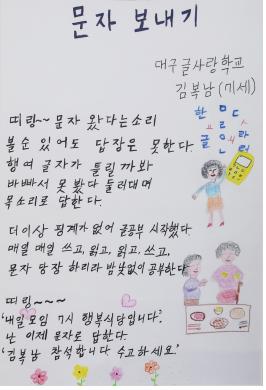 문자 보내기
대구글사랑학교
김복남(기세)
띠링~ 문자 왔다는소리
볼순 있어도 답장은 못한다.
행여 글자가 틀릴까봐
바빠서 못 봤다 둘러대며
목소리로 답한다.
더이상 핑계가 없어 글공부 시작했다
매일 매일 쓰고, 읽고, 읽고, 쓰고,
문자 답장 하리라 밤낮없이 공부한다
띠링~~~
'내일모임 7시 행복식당입니다'.
난 이제 문자로 답한다.
'김복남 참석합니다 수고하세요'